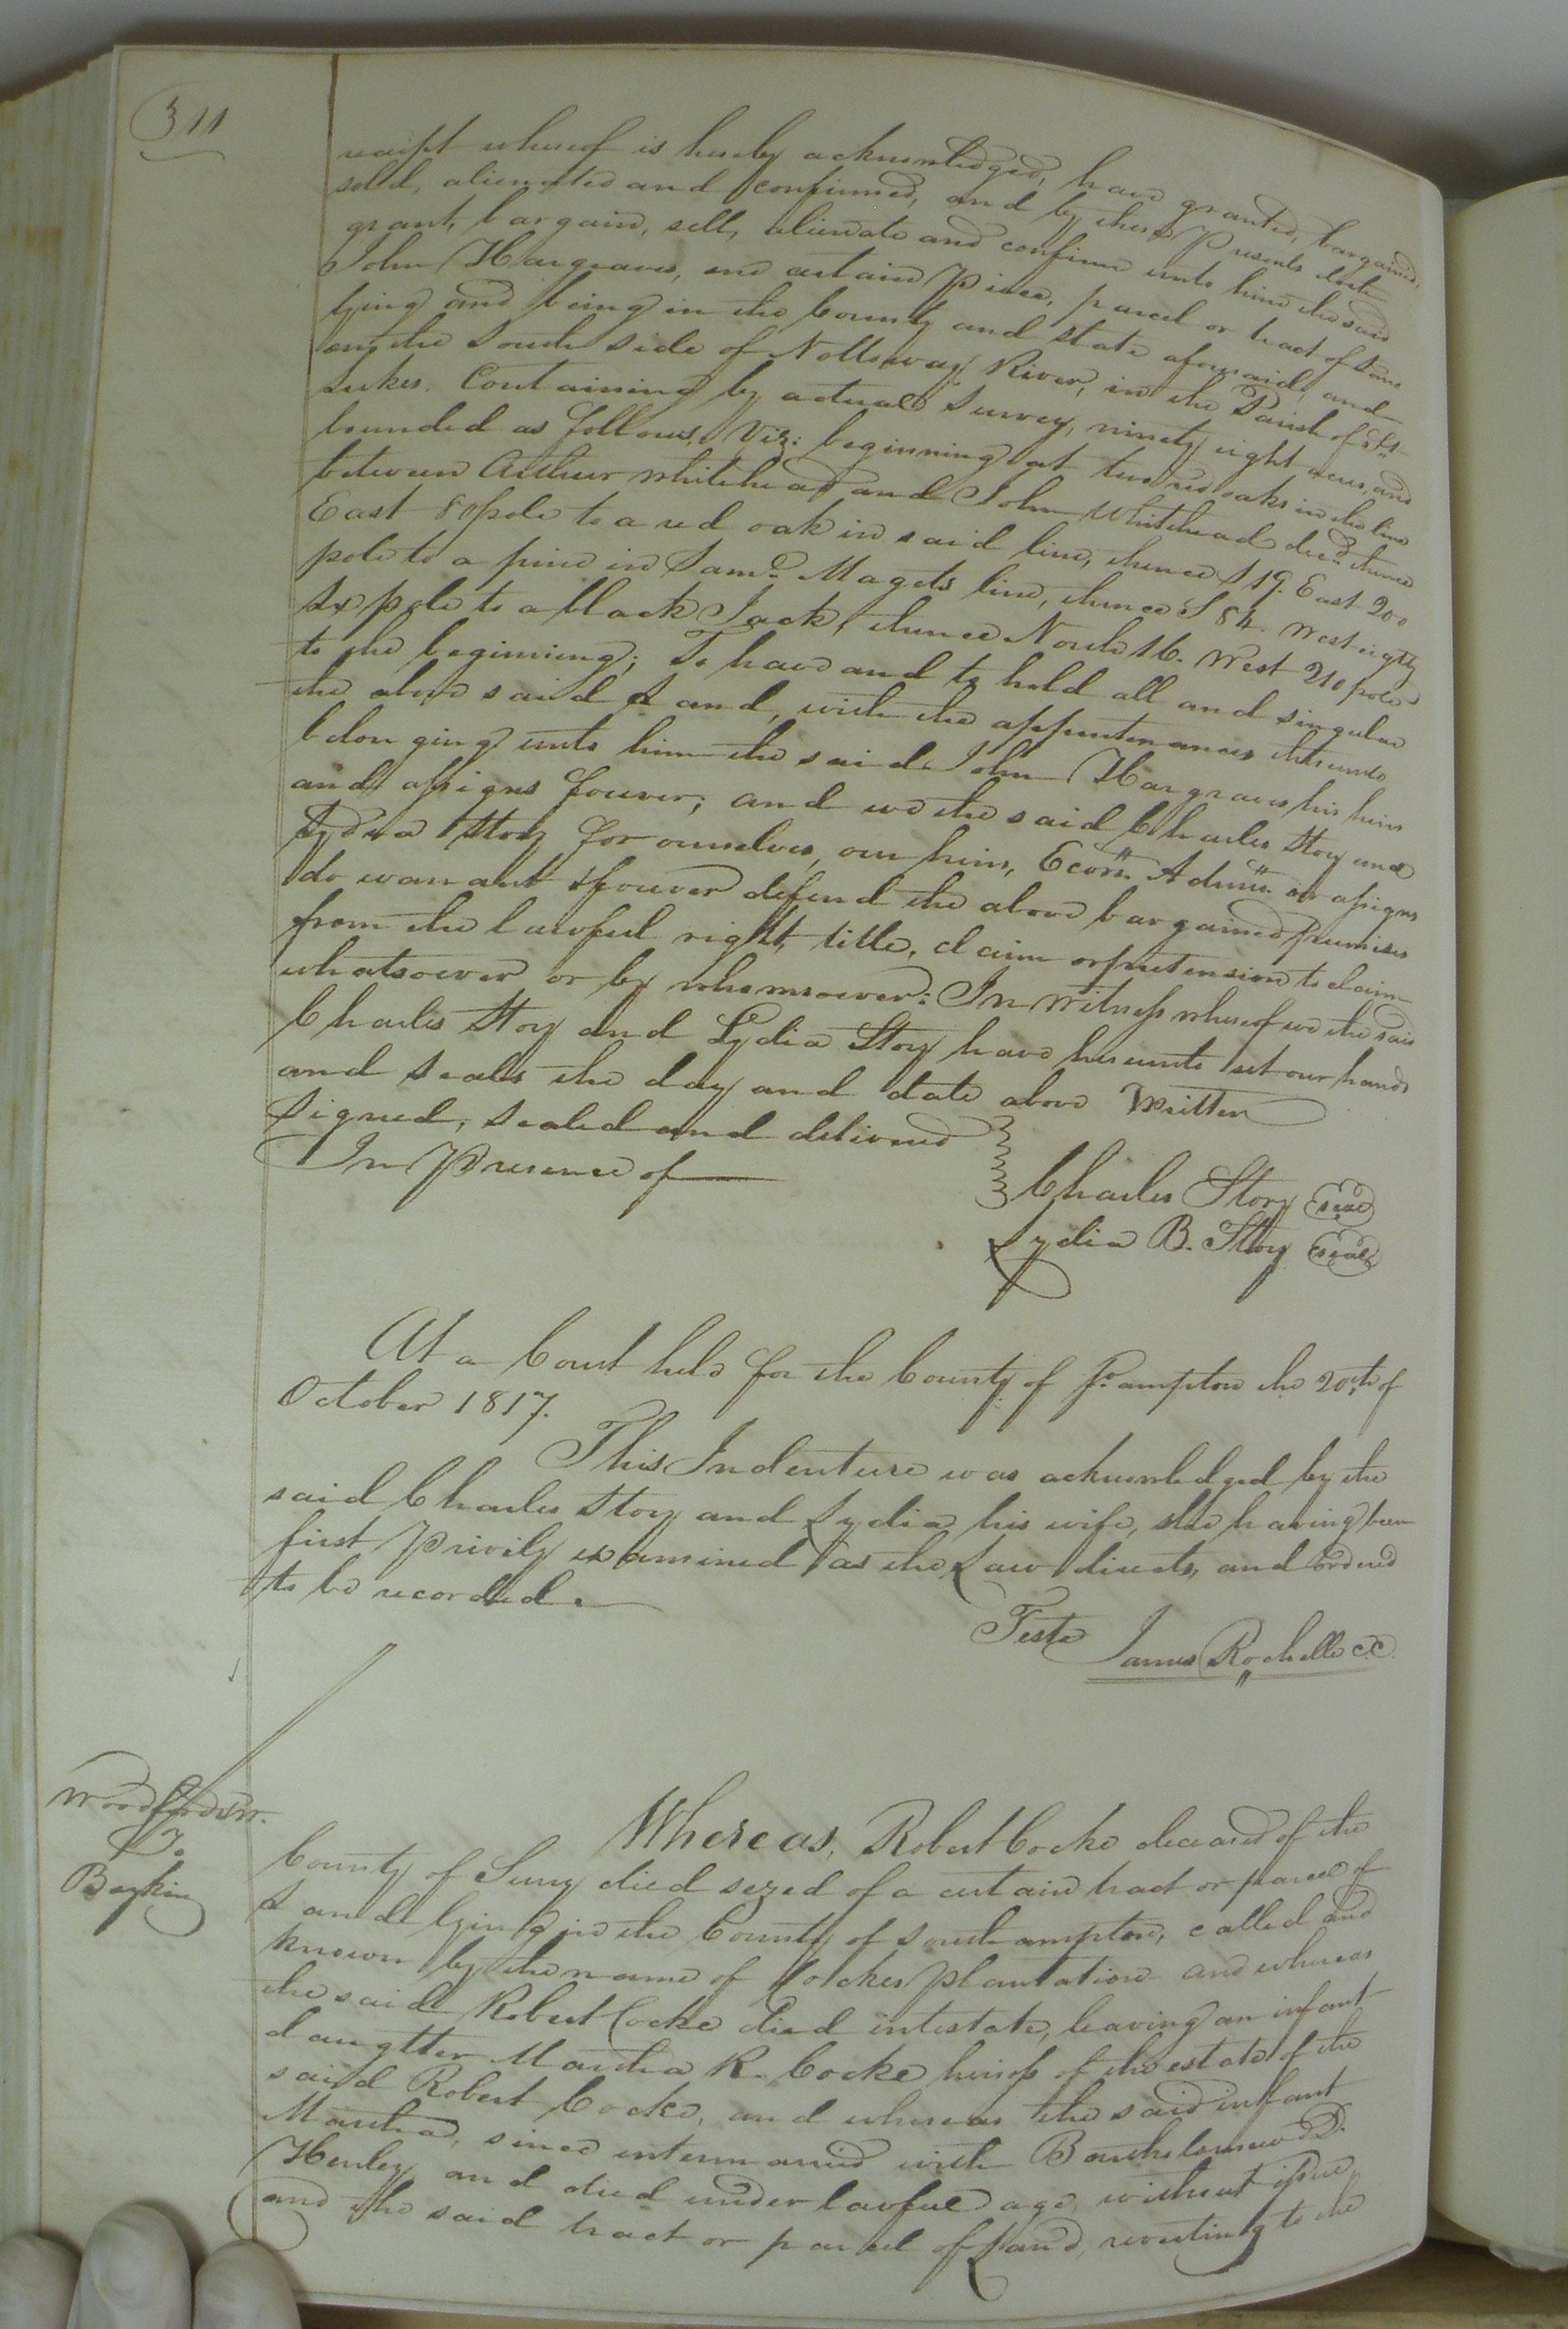 311
receipt whereof is hereby acknowledged, have granted, bargained,
sold, alienated and confirmed, and by these Presents doth
grant, bargain, sell, alienate and confirm unto him the said
John Hargraves, one certain Piece, parcel or tract of Land
lying and being in the County and State aforesaid, and
on the South side of Nottoway River, in the Parish of St.
Lukes. Containing by actual Survey, ninety eight acres, and
bounded as follows, Viz: beginning at two red oaks in the line
between Arthur Whitehead and John Whitehead decd. thence
East 80 pole to a red oak in said line, thence S 19. East 200
pole to a pine in Saml. Magets line, thence S 84. West eigty
Six pole to a black Jack, thence North 16. West 210 poles
to the beginning; To have and to hold all and singular
the above said Land, with the appurtenances thereunto
belonging unto him the said John Hargraves his heirs
and assigns forever; and we the said Charles Story and
Lydia Story for ourselves, our heirs, Ecors. Admrs. or assigns
do warrant & forever defend the above bargained premises
from the lawful right, title, claim or pretension to claim
whatsoever or by whomsoever: In Witness whereof we the said
Charles Story and Lydia Story have hereunto set our hands
and Seals the day and date above Written
Signed, Sealed and delivered
In Presence of
Charles Story seal
Lydia B. Story seal
At a Court held for the County of So.ampton the 20th of
October 1817.
This Indenture was acknowledged by the
said Charles Story and Lydia his wife, she having been
first Privily examined as the Law directs, and ordered
to be recorded.
Teste
James Rochelle C.C.
To
Boykin
Whereas, Robert Cocke deceased of the
County of Surry died sezed of a certain tract or parcel of
Land lying in the County of Southampton, called and
known by the name of Cockes Plantation and whereas
the said Robert Cocke died intestate, leaving an infant
daugtter Martha R. Cocke heiress of the estate of the
said Robert Cocke, and whereas the said infant
Martha, since intermarried with Bartholomew D.
Henley and died under lawful age, without issue,
and the said tract or parcel of Land, reverting to the